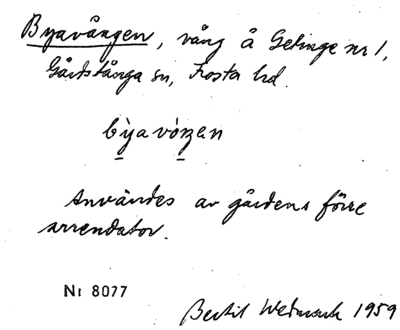 Byavången, vång å Getinge nr 1,
Gårdstånga sn, Frosta hd.
bỳavóŋen
Användes av gårdens förre
arrendator.
Nr 8077
Bertil Wedmark 1959